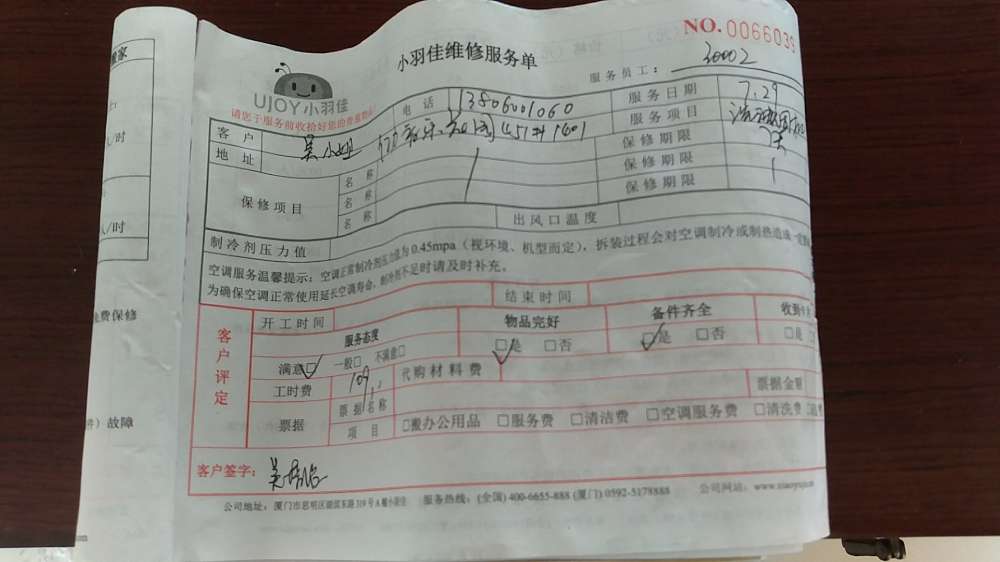 小羽佳维修服务单
NO.0066039
UJOY小羽佳
服务员工: 30002
请您于服务前收拾好您的贵重物品
客户 吴小姐 电话 13806001060 服务日期 7.29
地址 服务项目
保修项目 名称 保修期限 7天
名称 保修期限
名称 保修期限
制冷剂压力值 出风口温度
空调服务温馨提示: 空调正常制冷剂压力值为0.45mpa(视环境、机型而定),拆装过程会对空调制冷或制热造成一定
为确保空调正常使用延长空调寿命,制冷剂不足时请及时补充。
开工时间 结束时间
客户评定
服务态度 物品完好 备件齐全 收到
满意□ 一般□ 不满意□ □是 □否 □是 □否 □是
工时费 109 代购材料费
票据 票据名称 票据金额
项目 □搬办公用品 □服务费 □清洁费 □空调服务费 □清洗费
客户签字:
公司地址: 厦门市思明区 服务热线: (全国) 400-6655-888 (厦门) 0592-5178888 公司网站:
/时
人/时
免费保修
件) 故障